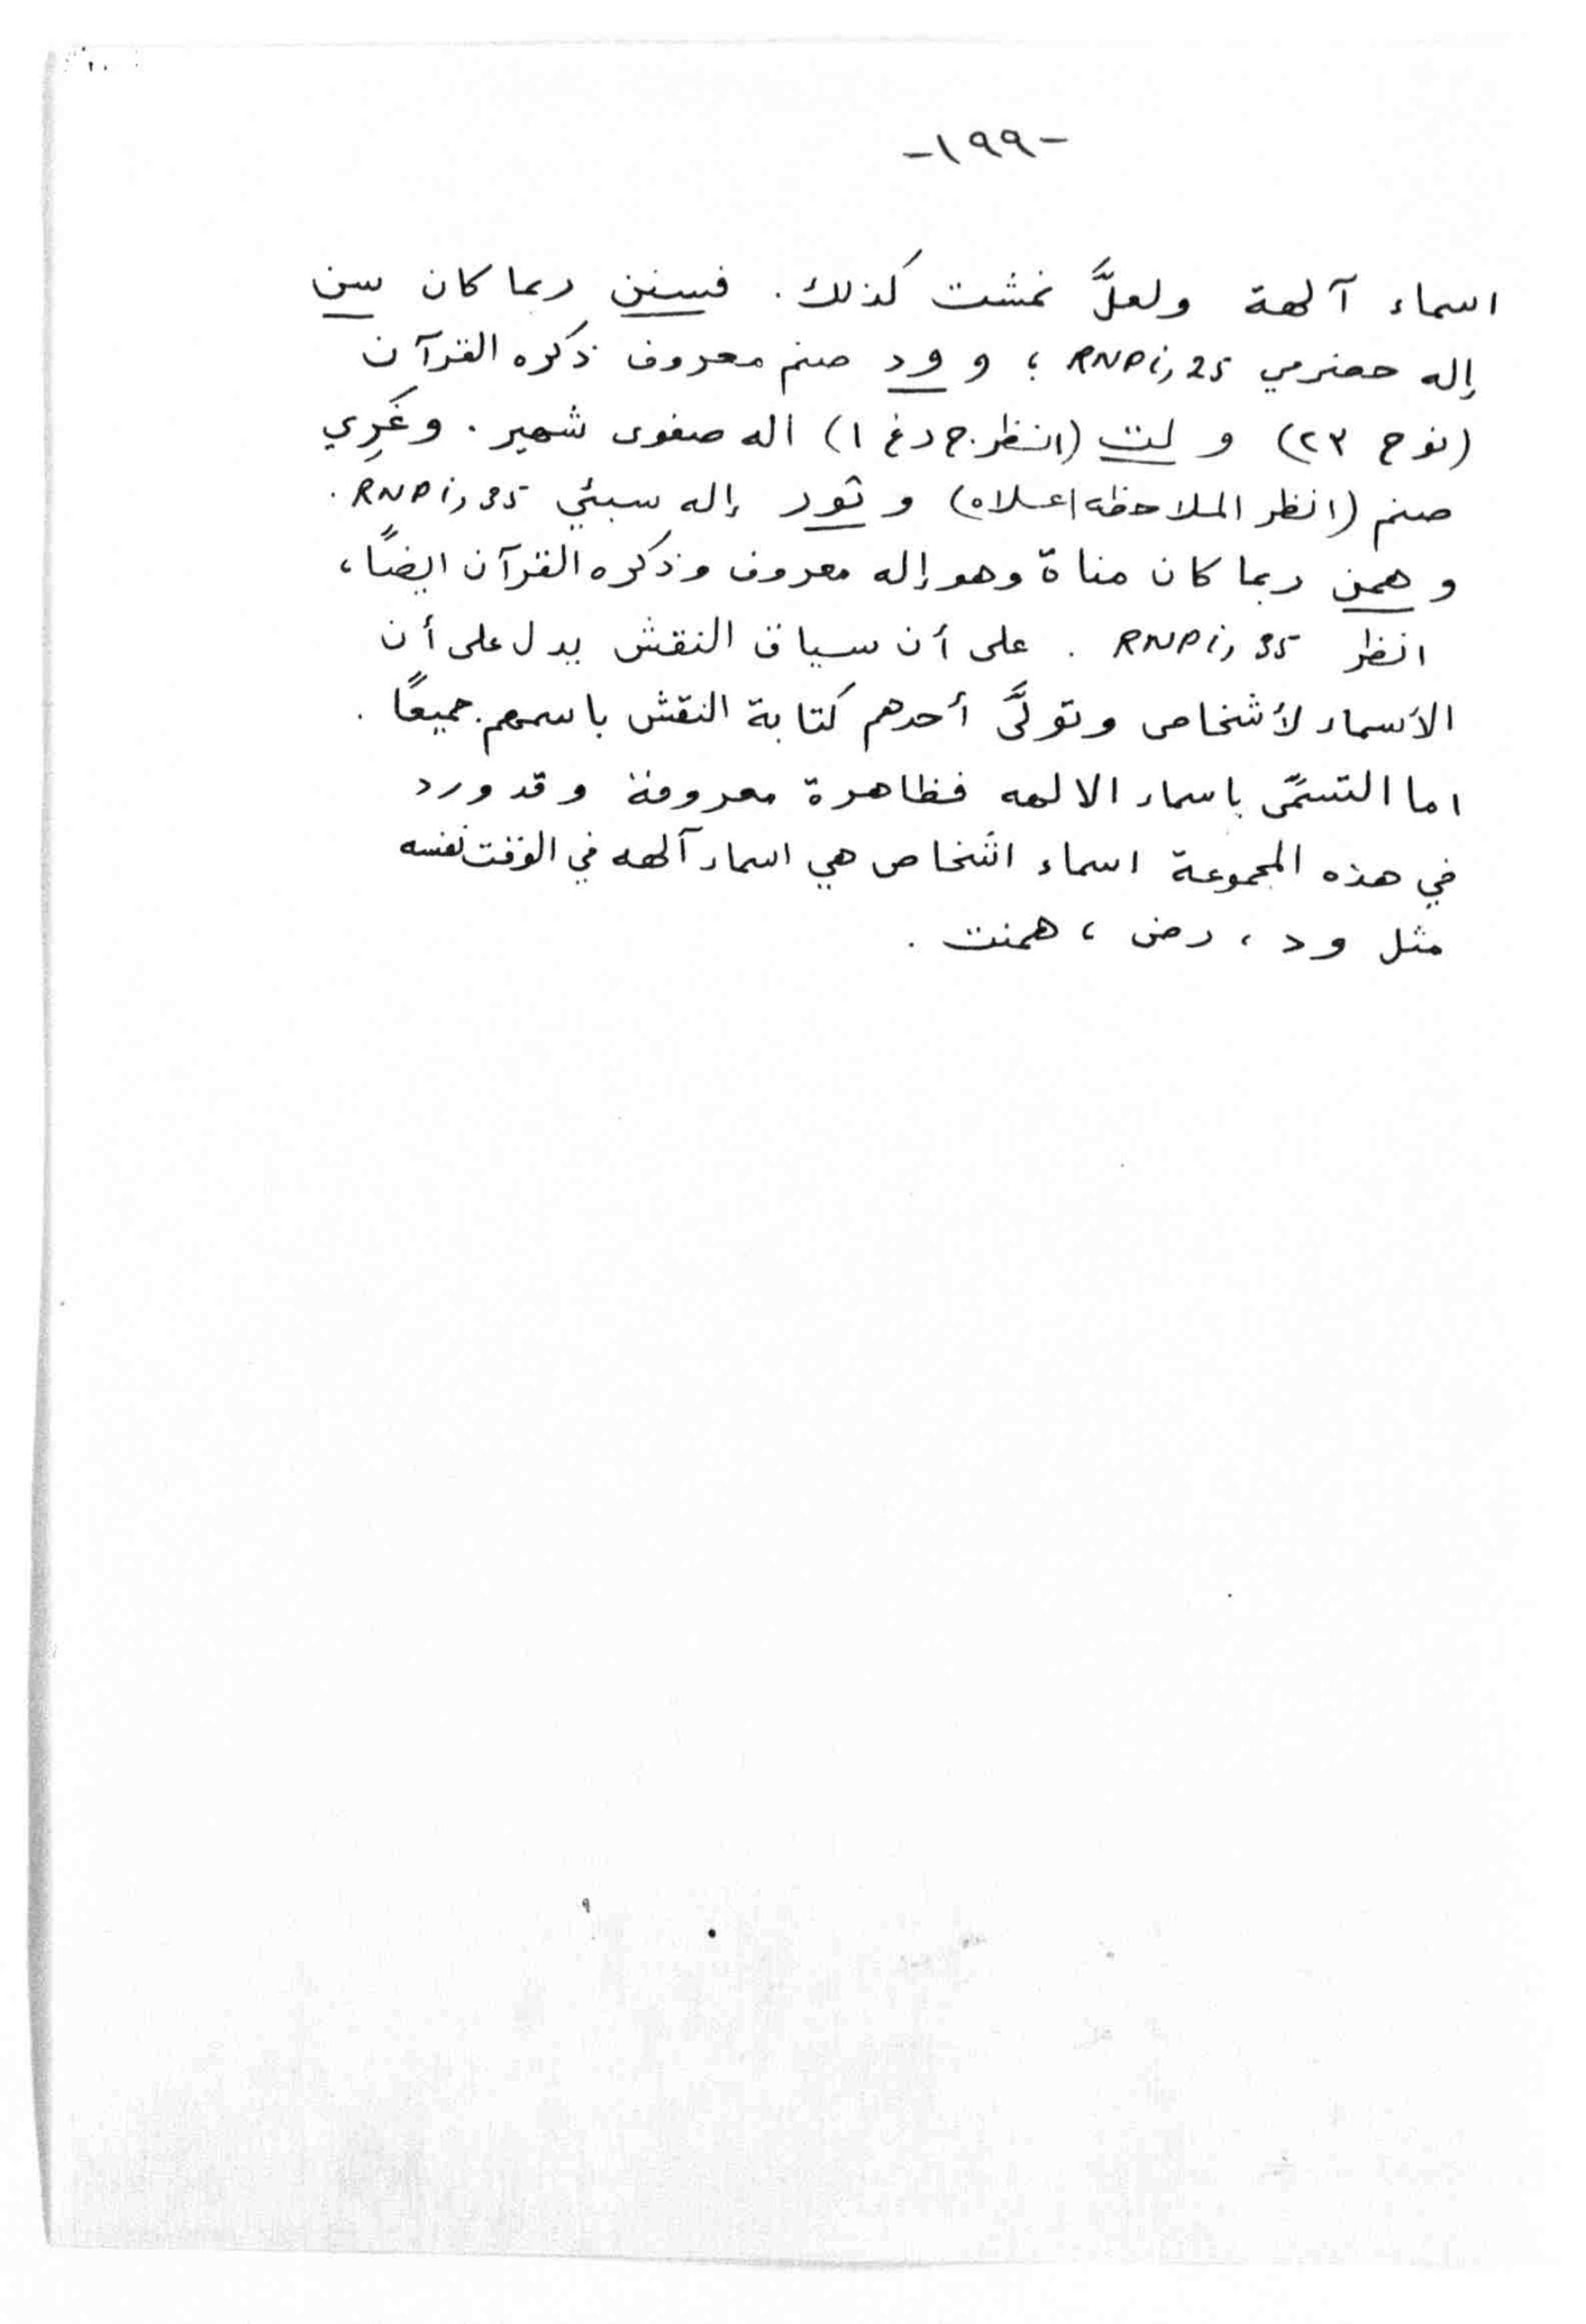 -١٩٩-
اسماء آلهة ولعلَّ نمشت كذلك . فسنن ربما كان سن
إله حضرمي RNP i, 25 ؛ و ود صنم معروف ذكره القرآن
(نوح ٢٣) و لت (انظر ج دغ ١) اله صفوى شهير . وغَرِي
صنم (انظر الملاحظه اعلاه) و ثور إله سبئي RNP i, 35 .
و همن ربما كان مناة وهو إله معروف وذكره القرآن ايضًا ،
انظر RNP i, 35 . على أن سياق النقش يدل على أن
الأسماء لأشخاص وتولَّى أحدهم كتابة النقش باسمهم جميعًا .
اما التسمّى باسماء الالهه فظاهرة معروفة وقد ورد
في هذه المجموعة اسماء اشخاص هي اسماء آلهه في الوقت نفسه
مثل ود ، رض ، همنت .